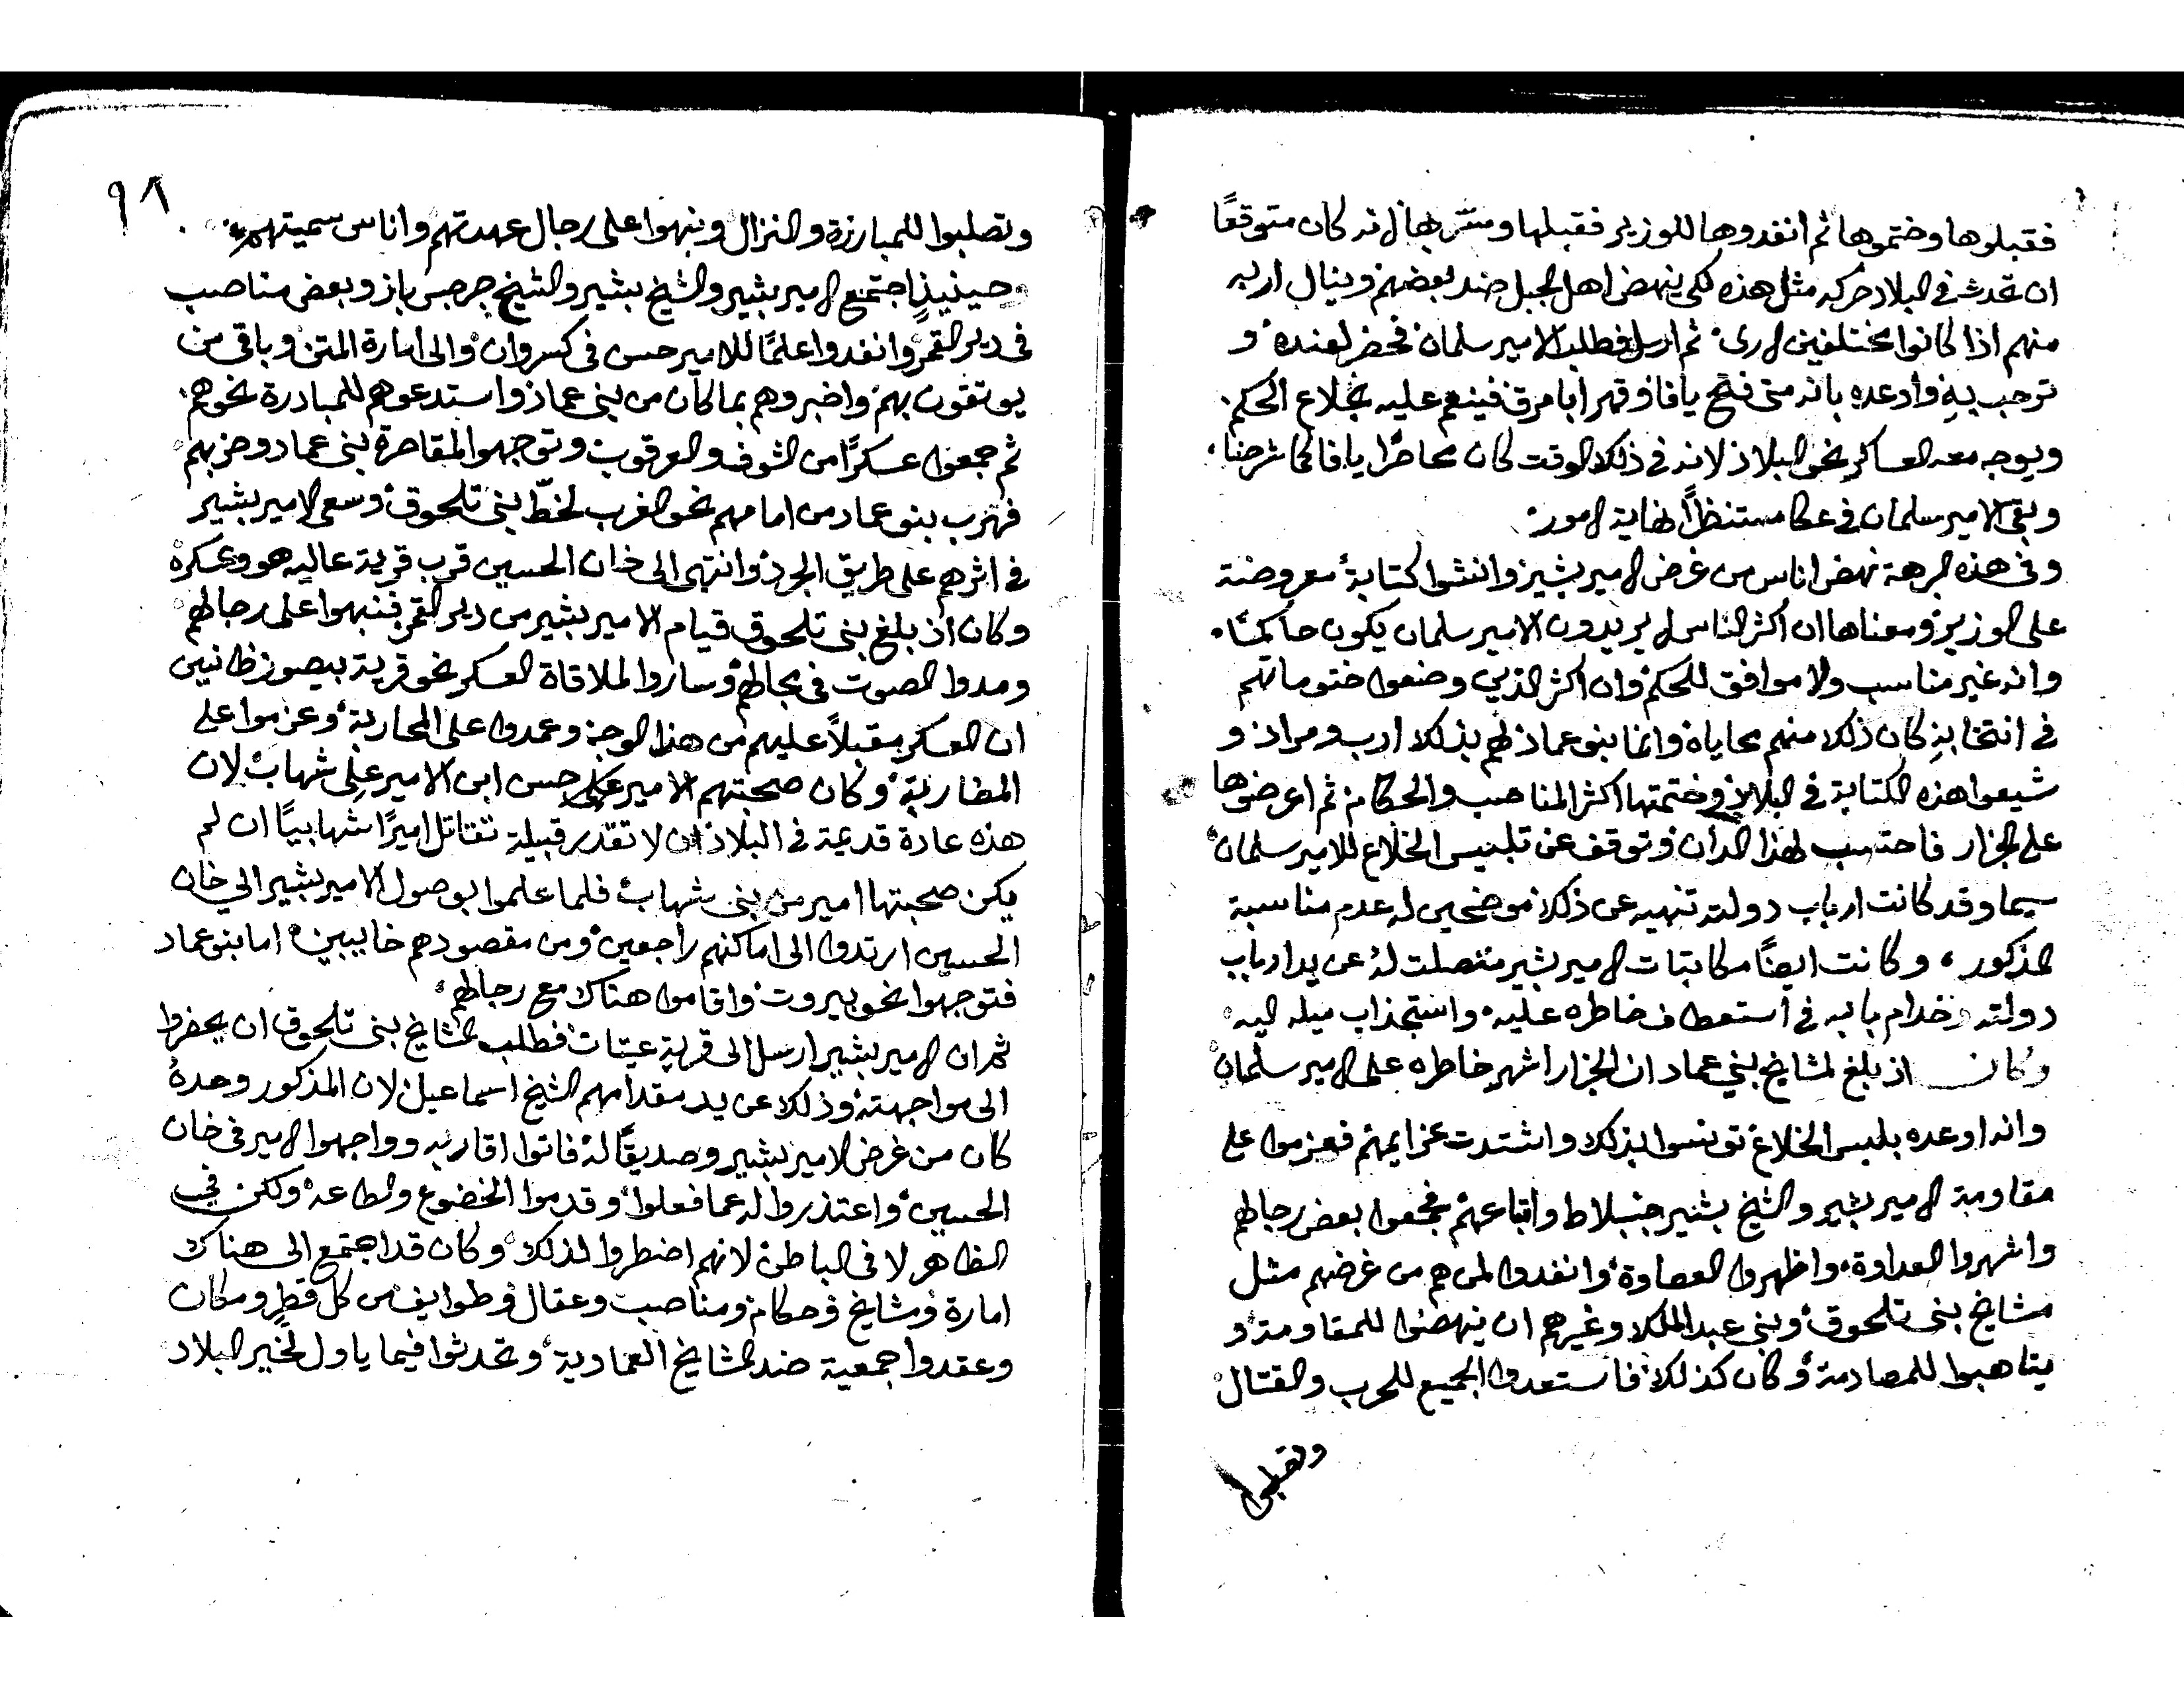 فقبلوها وختموها ثم انفدوها للوزير فقبلها وسرّ بها لانه كان متوقعًا
ان تحدث في البلاد حركه مثل هذه لكي ينهض اهل الجبل ضد بعضهم وينال اربه
منهم اذا كانوا مختلفين الارى، ثم ارسل فطلب الامير سلمان فحضر لعنده، و
ترحب به، وادعده بانه متى فتح يافا، وقهر ابا مرق، فينعم عليه بخلاع الحكم.
ويوجه معه العساكر نحو البلاد، لانه في ذلك الوقت كان محاصرًا يافا كما شرحنا،
وبقي الامير سلمان في عكا مستنظرًا نهاية الامور.
وفي هذه البرهة نهض اناس من غرض الامير بشير، وانشوا كتابة، معروضة
على الوزير، ومعناها ان اكثر الناس لا يريدون الامير سلمان يكون حاكمًا،
وانه غير مناسب ولا موافق للحكم، وان اكثر الذين وضعوا ختوماتهم
في انتخابه، كان ذلك منهم محاياة، وانما بنو عماد، لهم بذلك ارب ومراد، و
شيعوا هذه الكتابة في البلاد، وختمتها اكثر المناصب والحكام، ثم اعرضوها
على الجزار فاحتسب لهذا الشان، وتوقف عن تلبيس الخلاع للامير سلمان،
سيما وقد كانت ارباب دولته تنهيه عن ذلك، موضحين له عدم مناسبة
المذكور، وكانت ايضًا مكاتبات الامير بشير متصلت له، عن يد ارباب
دولته وخدام بابه في استعطاف خاطره عليه، واستجذاب ميله اليه،
وكان اذ بلغ لمشايخ بني عماد ان الجزار اشهر خاطره على الامير سلمان،
وانه اوعده بلبس الخلاع، تونسوا بذلك واشتدت عزايمهم فعزموا على
مقاومة الامير بشير والشيخ بشير جنبلاط واتباعهم، فجمعوا بعض رجالهم
واشهروا العداوة، واظهروا العصاوة، وانفدوا لمن هم من غرضهم مثل
مشايخ بني تلحوق، وبني عبد الملك وغيرهم ان ينهضوا للمقاومة، و
يتاهبوا للمصادمة، وكان كذلك، فاستعدوا الجميع للحرب والقتال،
وتصلبوا
٩٨
وتصلبوا للمبارزة والنزال، ونبهوا على رجال عهدتهم واناس سميتهم،
وحينيذٍ اجتمع الامير بشير والشيخ بشير والشيخ جرجس باز، وبعض مناصب
في دير القمر، وانفدوا علمًا للامير حسن في كسروان، والى امارة المتن، وباقي من
يوتقون بهم، واخبروهم بما كان من بني عماد، واستدعوهم للمبادرة نحوهم،
ثم جمعوا عسكرًا من الشوف والعرقوب، وتوجهوا لمقاصرة بني عماد وحزبهم،
فهرب بنو عماد من امامهم نحو الغرب لخطّ بني تلحوق، وسعى الامير بشير
في اثرهم على طريق الجرد، وانتهى الى خان الحسين قرب قرية عاليه هو وعسكره،
وكان اذ بلغ بني تلحوق قيام الامير بشير من دير القمر، فنبهوا على رجالهم،
ومدوا الصوت في محالهم، وساروا لملاقاة العسكر نحو قرية بيصور، ظانين
ان العسكر مقبلاً عليهم من هذا الوجه، وعمدوا على المحاربة، وعزموا على
المضاربة، وكان صحبتهم الامير علي حسن ابن الامير علي شهاب، لان
هذه عادة قديمة في البلاد، ان لا تقدر قبيلة تقاتل اميرًا شهابيًا ان لم
يكن صحبتها امير من بني شهاب، فلما علموا بوصول الامير بشير الى خان
الحسين، ارتدوا الى اماكنهم راجعين، ومن مقصودهم خايبين، اما بنو عماد
فتوجهوا نحو بيروت، واقاموا هناك مع رجالهم،
ثم ان الامير بشير ارسل الى قرية عيتات، فطلب مشايخ بني تلحوق ان يحضروا
الى مواجهته، وذلك عن يد مقدامهم الشيخ اسماعيل، لان المذكور وحدهُ
كان من غرض الامير بشير وصديقًا له، فاتوا اقاربه وواجهوا الامير في خان
الحسين، واعتذروا له عما فعلوا، وقدموا الخضوع والطاعه، ولكن في
الظاهر لا في الباطن، لانهم اضطروا لذلك، وكان قد اجتمع الى هناك
امارة، ومشايخ، وحكام، ومناصب، وعقال، وطوايف من كل قطرٍ ومكان
وعقدوا جمعية ضد المشايخ العمادية، وتحدثوا فيما ياول لخير البلاد